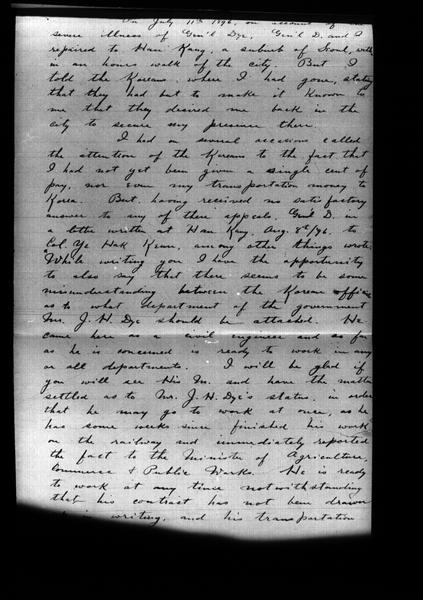 On July 11th 1896, on account of the
severe illness of Gen'l Dye, Gen'l D. and I
repaired to Han Kang, a suburb of Seoul, with
in an hours walk of the city. But I
told the Koreans where I had gone, stating
that they had but to make it known to
me that they desired me back in the
city to secure my presence there.
I had on several occasions called
the attention of the Koreans to the fact that
I had not yet been given a single cent of
pay, nor even my transportation money to
Korea. But, having received no satisfactory
answer to any of these appeals, Gen'l D. in
a letter written at Han Kang, Aug. 8th/96. to
Col. Ye Hak Keun, among other things wrote
"While writing you I have the opportunity
to also say that there seems to be some
misunderstanding between the Korean offices
as to what department of the government
Mr. J. H. Dye should be attached. He
came here as a civil engineer and so far
as he is concerned is ready to work in any
or all departments. I will be glad if
you will see His M. and have the matter
settled as to Mr. J. H. Dye's status, in order
that he may go to work at once, as he
has some weeks since finished his work
on the railway and immediately reported
the fact to the Minister of Agriculture,
Commerce & Public Works. He is ready
to work at any time notwithstanding
that his contract has not been drawn
in writing, and his transportation